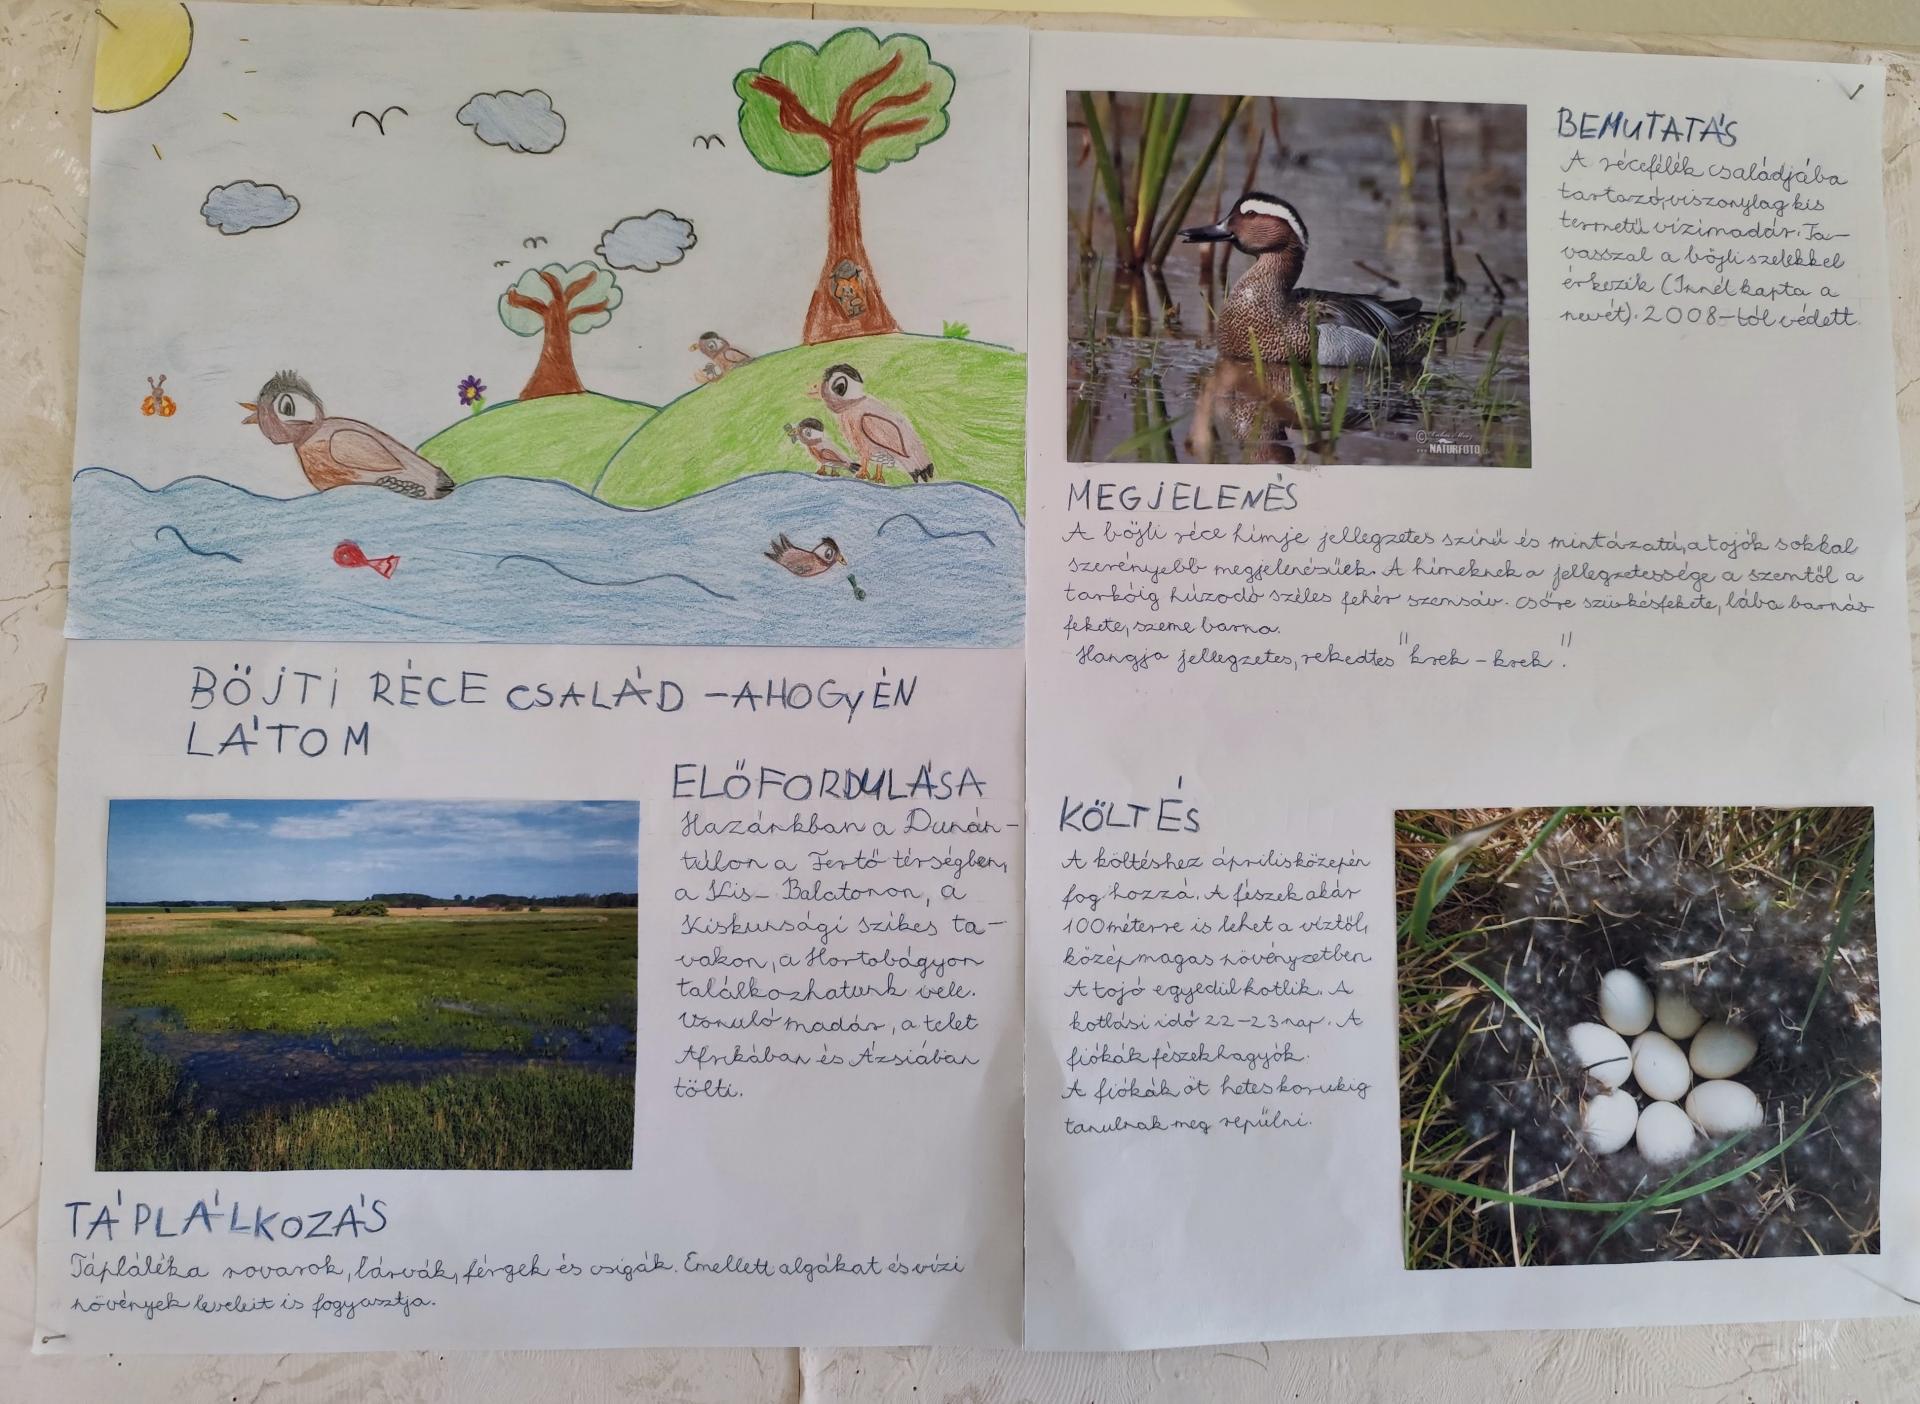 BÖJTI RÉCE CSALÁD -AHOGY ÉN
LÁTOM
ELŐFORDULÁSA
Hazánkban a Dunán-
túlon a Fertő térségben,
a Kis-Balatonon, a
Kiskunsági szikes ta-
vakon, a Hortobágyon
találkozhatunk vele.
Vonuló madár, a telet
Afrikában és Ázsiában
tölti.
TÁPLÁLKOZÁS
Tápláléka rovarok, lárvák, férgek és csigák. Emellett algákat és vízi
növények leveleit is fogyasztja.
NATURFOTO
BEMUTATÁS
A récefélék családjába
tartozó, viszonylag kis
termetű vízimadár. Ta-
vasszal a böjti szelekkel
érkezik (Innét kapta a
nevét). 2008-tól védett.
MEGJELENÉS
A böjti réce hímje jellegzetes színű és mintázatú, a tojók sokkal
szerényebb megjelenésűek. A hímeknek a jellegzetessége a szemtől a
tarkóig húzodó széles fehér szemsáv. Csőre szürkésfekete, lába barnás
fekete, szeme barna.
Hangja jellegzetes, rekedtes "krek - krek".
KÖLTÉS
A költéshez április közepén
fog hozzá. A fészek akár
100 méterre is lehet a víztől,
közép magas növényzetben.
A tojó egyedül kotlik. A
kotlási idő 22-23 nap. A
fiókák fészekhagyók.
A fiókák öt hetes korukig
tanulnak meg repülni.